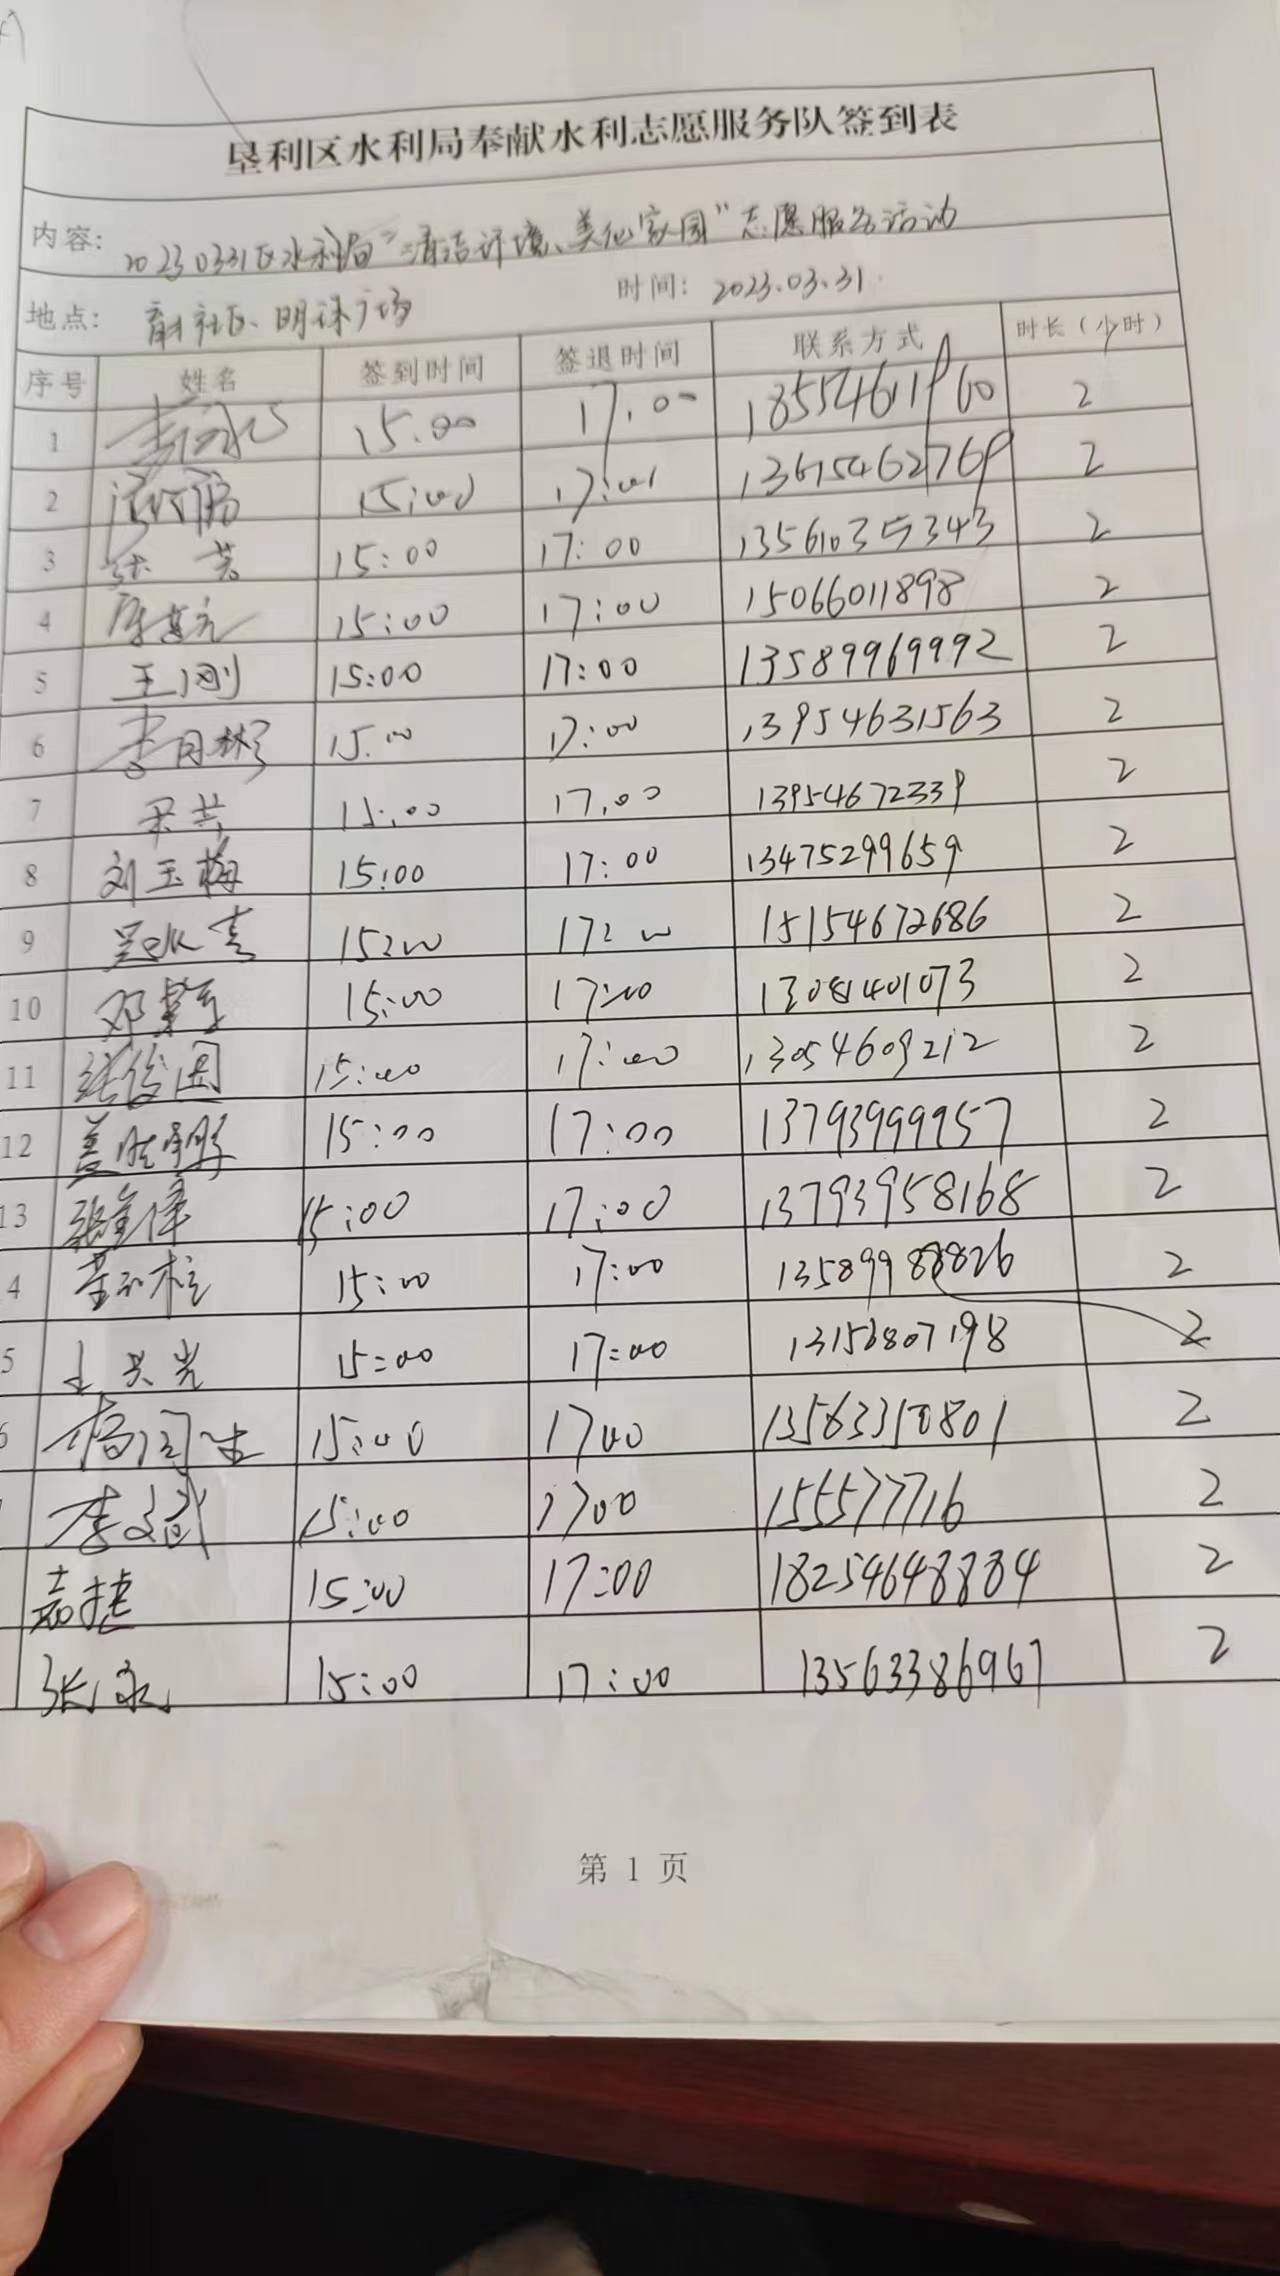 垦利区水利局奉献水利志愿服务队签到表
内容: 20230331区水利局"清洁环境、美化家园"志愿服务活动
地点: 社区、明珠广场 时间: 2023.03.31
序号 姓名 签到时间 签退时间 联系方式 时长(小时)
1 15.00 17.00 18554611960 2
2 15:00 17:00 13615462769 2
3 张芸 15:00 17:00 13561035343 2
4 15:00 17:00 15066011898 2
5 王刚 15:00 17:00 13589969992 2
6 李月彬 15.00 17:00 13954631563 2
7 15:00 17.00 13954672339 2
8 刘玉梅 15:00 17:00 13475299659 2
9 15:00 17:00 15154672686 2
10 15:00 17:00 2
11 张俊国 15:00 17:00 13054609212 2
12 盖 15:00 17:00 13793999957 2
13 张金泽 15:00 17:00 13793958168 2
4 董 15:00 17:00 2
5 王炎光 15:00 17:00 2
6 杨 15:00 1700 13563310801 2
李文武 15:00 1700 2
嘉捷 15:00 17:00 18254648884 2
张永 15:00 17:00 13563386967 2
第 1 页